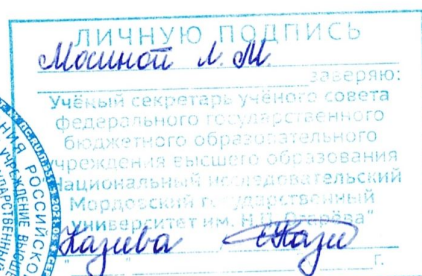 ЛИЧНУЮ ПОДПИСЬ
Мосиной Л. М.
заверяю:
Учёный секретарь учёного совета
федерального государственного
бюджетного образовательного
учреждения высшего образования
"Национальный исследовательский
Мордовский государственный
университет им. Н.П. Огарёва"
г.